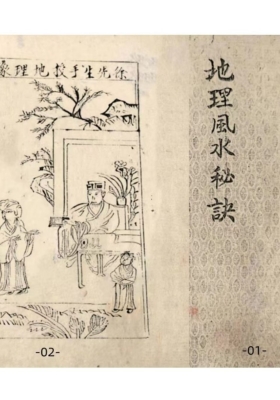 地理風水秘訣
徐先生手授地理
-02-
-01-